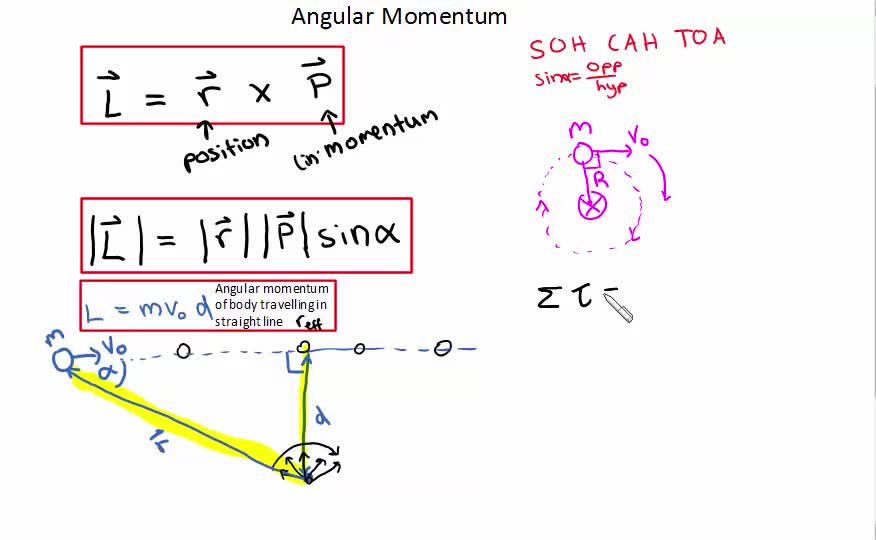 Angular Momentum
L = r x P
position
lin. momentum
|L| = |r||P| sinα
L = mv₀ d
Angular momentum
of body travelling in
straight line
r eff
m
v₀
α
r
d
SOH CAH TOA
sinα = opp
hyp
m
v₀
R
Σ τ =